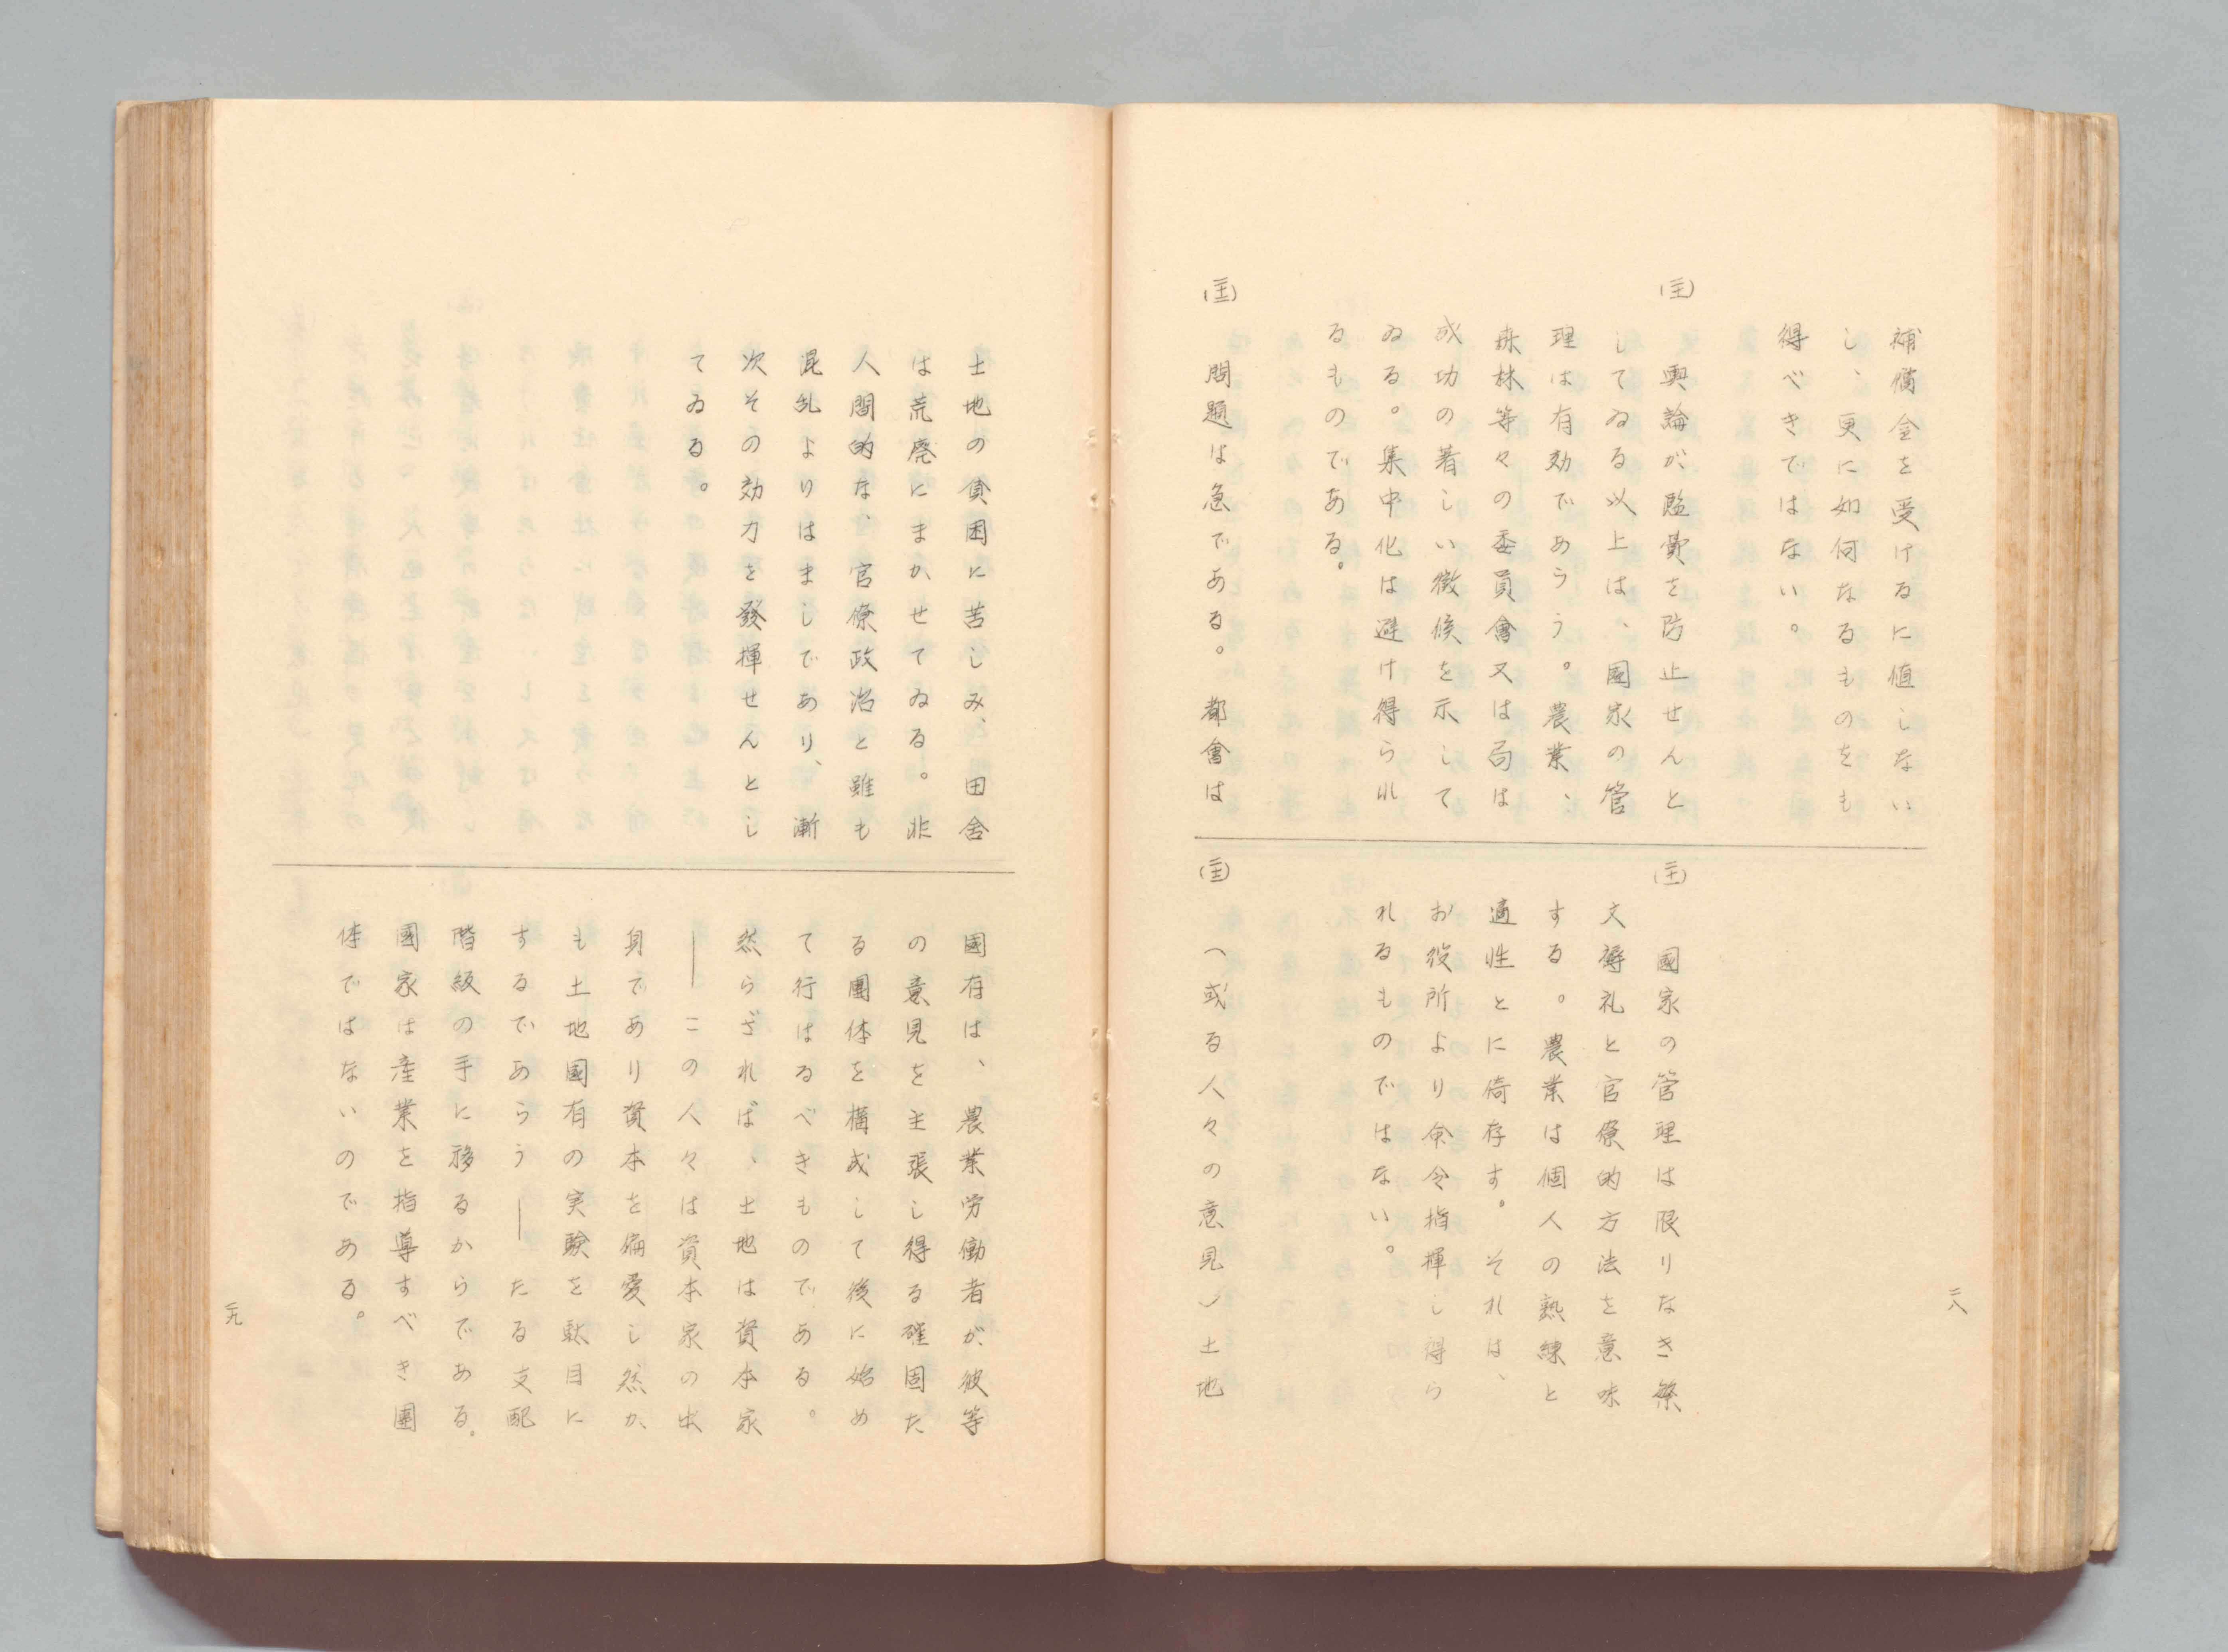 補償金を受けるに値しない
し、更に如何なるものをも
得べきではない。
輿論が監費を防止せんと
してゐる以上は、國家の管
理は有効であらう。農業、
森林等々の委員會又は局は
成功の著しい徴候を示して
ゐる。集中化は避け得られ
るものである。
問題は急である。都會は
國家の管理は限りなき繁
文褥礼と官僚的方法を意味
する。農業は個人の熟練と
適性とに倚存す。それは、
お役所より命令指揮し得ら
れるものではない。
（或る人々の意見）土地
二八
土地の貧困に苦しみ、田舎
は荒廃にまかせてゐる。非
人間的な、官僚政治と雖も
混乱よりはましであり、漸
次その効力を發揮せんとし
てゐる。
國有は、農業労働者が、彼等
の意見を主張し得る確固た
る團体を構成して後に始め
て行はるべきものである。
然らざれば、土地は資本家
――この人々は資本家の出
身であり資本を偏愛し然か
も土地國有の実験を駄目に
するであらう――たる支配
階級の手に移るからである。
國家は産業を指導すべき團
体ではないのである。
二九